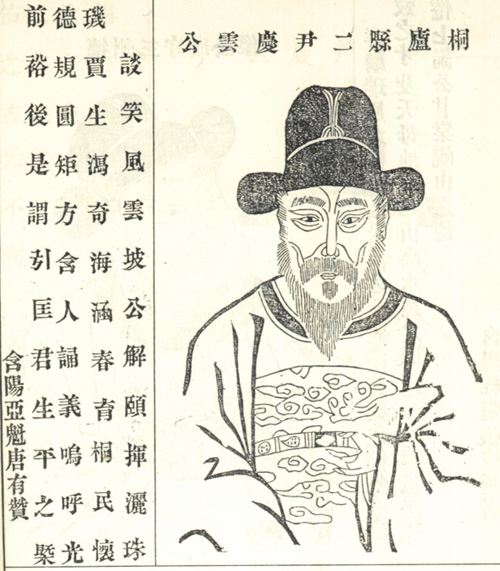 桐廬縣二尹慶雲公
談笑風雲坡公解頤揮灑珠
璣賈生瀉奇海涵春育桐民懷
德規圓矩方含人誦義嗚呼光
前裕後是謂引匡君生平之槩
含陽亞魁唐有贊